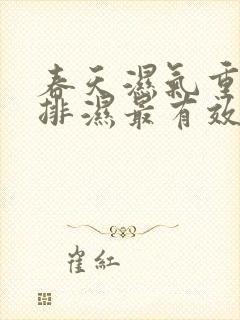 春天濕氣重
排濕最有效
崔紅